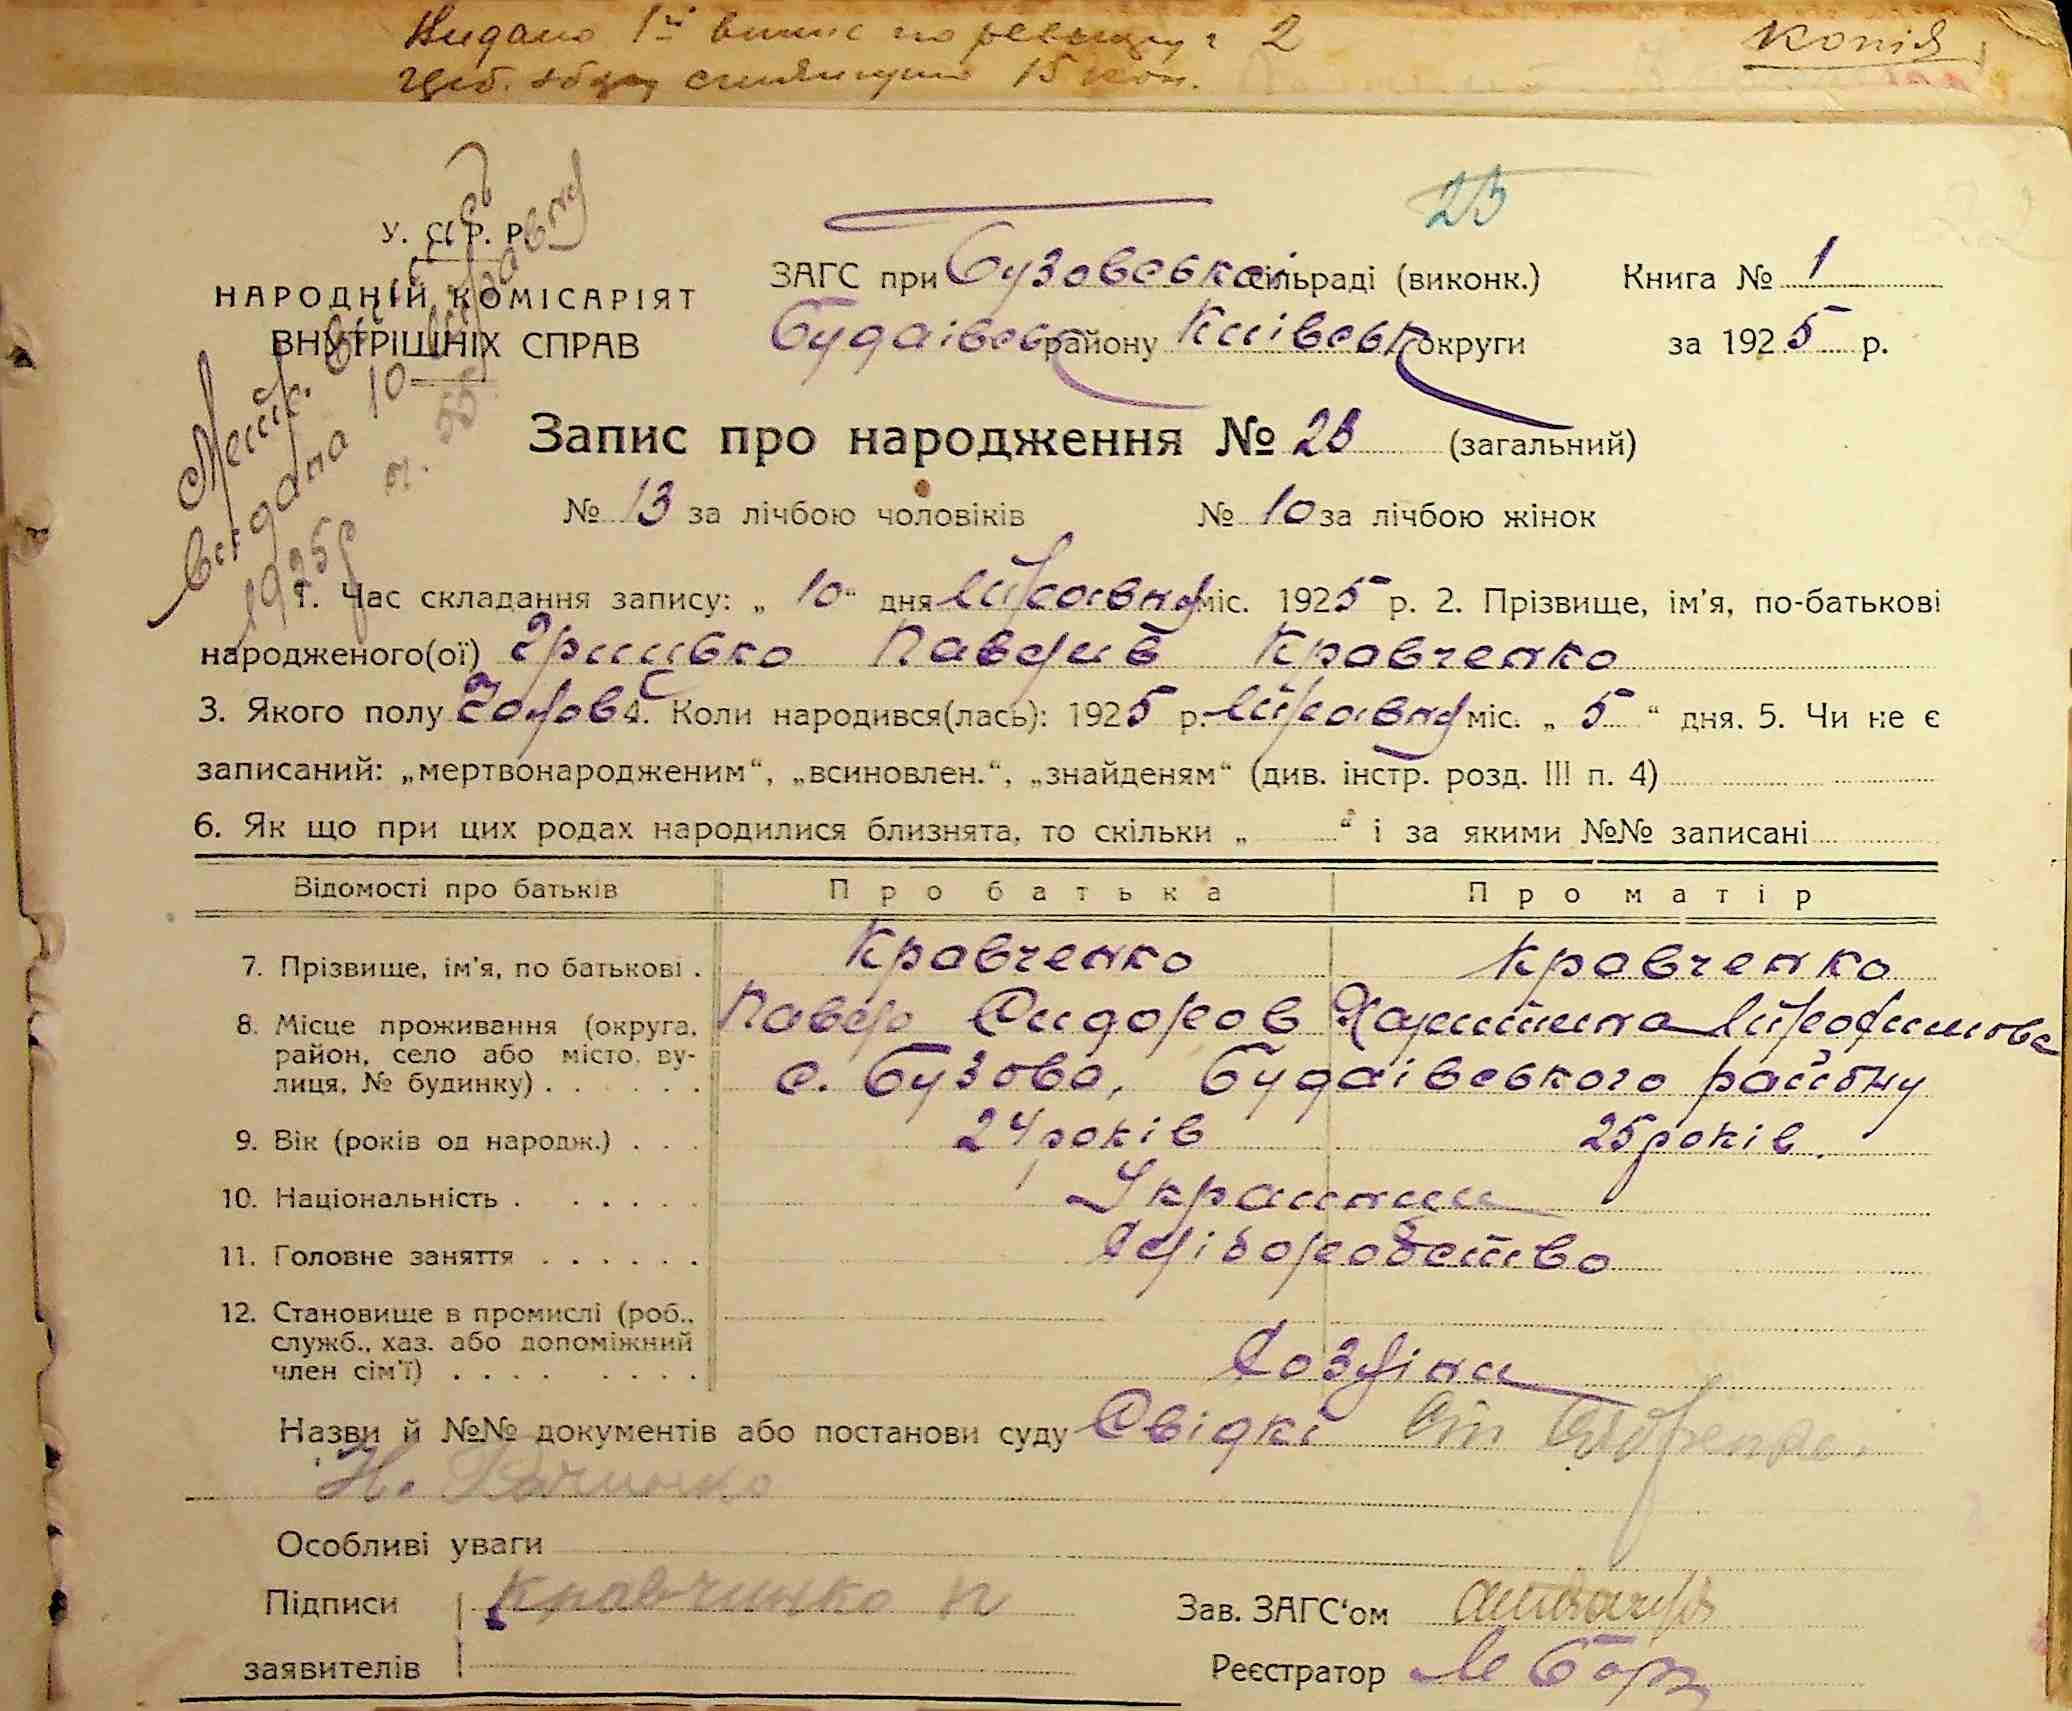 Видано 1й випис по реєстру № 2
збору 15 коп.
копія
23
У. С. Р. Р.
НАРОДНІЙ КОМІСАРІЯТ
ВНУТРІШНІХ СПРАВ
ЗАГС при Бузовській сільраді (виконк.) Книга № 1
Будаівськ району Київськ округи за 1925 р.
видана 10 травня
1925 р.
Запис про народження № 23 (загальний)
№ 13 за лічбою чоловіків № 10 за лічбою жінок
1. Час складання запису: „ 10 “ дня травня міс. 1925 р. 2. Прізвище, ім'я, по-батькові
народженого(ої) Грицько Павлив Кравченко
3. Якого полу Чолов 4. Коли народився(лась): 1925 р. травня міс. „ 5 “ дня. 5. Чи не є
записаний: „мертвонародженим“, „всиновлен.“, „знайденям“ (див. інстр. розд. III п. 4)
6. Як що при цих родах народилися близнята, то скільки „ “ і за якими №№ записані
Відомості про батьків Про батька Про матір
7. Прізвище, ім'я, по батькові . Кравченко Кравченко
Павло Сидоров Харитина Трофимова
8. Місце проживання (округа, район, село або місто, вулиця, № будинку) . . . . . . с. Бузова, Будаівського району
9. Вік (років од народж.) . . . 24 років 25 років.
10. Національність . . . . . . Украинци
11. Головне заняття . . . . . . Хліборобство
12. Становище в промислі (роб.,
служб., хаз. або допоміжний
член сім'ї) . . . . . . . . Хозяіни
Назви й №№ документів або постанови суду Свідкі
Н.
Особливі уваги
Підписи Кравчинко П Зав. ЗАГС'ом
заявителів Реєстратор